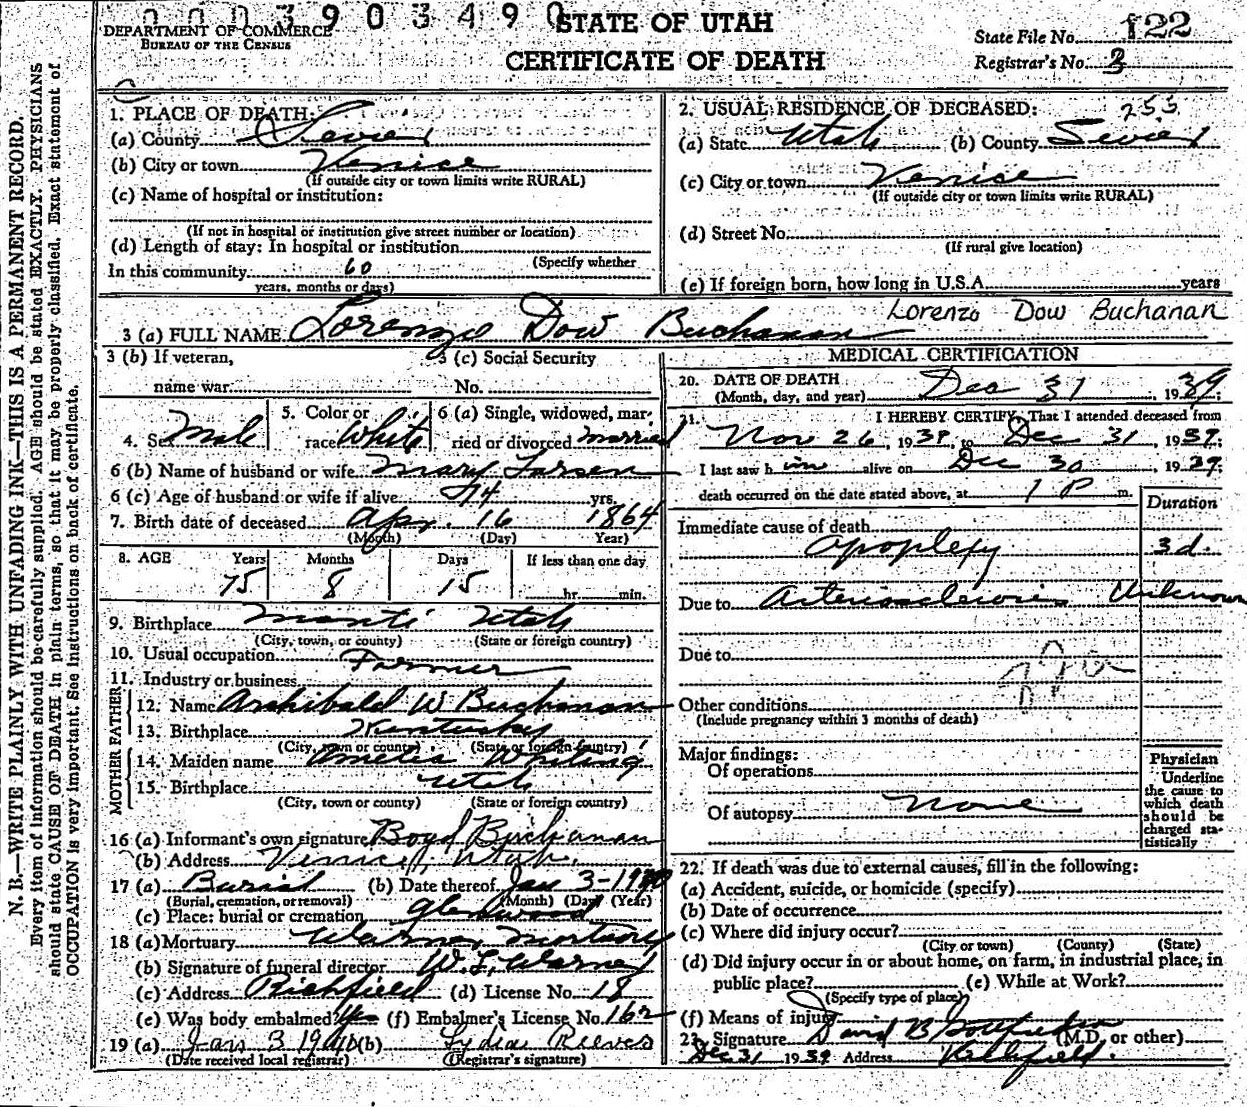 0003903490
DEPARTMENT OF COMMERCE
BUREAU OF THE CENSUS
STATE OF UTAH
CERTIFICATE OF DEATH
State File No. 122
Registrar's No. 3
N. B.—WRITE PLAINLY WITH UNFADING INK—THIS IS A PERMANENT RECORD.
Every item of information should be carefully supplied. AGE should be stated EXACTLY. PHYSICIANS
should state CAUSE OF DEATH in plain terms, so that it may be properly classified. Exact statement of
OCCUPATION is very important. See instructions on back of certificate.
1. PLACE OF DEATH:
(a) County Sevier
(b) City or town Venice
(If outside city or town limits write RURAL)
(c) Name of hospital or institution:
(If not in hospital or institution give street number or location)
(d) Length of stay: In hospital or institution
(Specify whether
In this community 60
years, months or days)
2. USUAL RESIDENCE OF DECEASED: 255
(a) State Utah (b) County Sevier
(c) City or town Venice
(If outside city or town limits write RURAL)
(d) Street No.
(If rural give location)
(e) If foreign born, how long in U.S.A. years
3 (a) FULL NAME Lorenzo Dow Buchanan Lorenzo Dow Buchanan
3 (b) If veteran,
name war
3 (c) Social Security
No.
4. Sex Male
5. Color or
race White
6 (a) Single, widowed, mar-
ried or divorced married
6 (b) Name of husband or wife Mary Larsen
6 (c) Age of husband or wife if alive 74 yrs.
7. Birth date of deceased Apr. 16 1864
(Month) (Day) Year)
8. AGE Years Months Days If less than one day
75 8 15 hr. min.
9. Birthplace Manti Utah
(City, town, or county) (State or foreign country)
10. Usual occupation Farmer
11. Industry or business
FATHER
12. Name Archibald W Buchanan
13. Birthplace Kentucky
(City, town or county) (State or foreign country)
MOTHER
14. Maiden name Amelia Whiting
15. Birthplace Utah
(City, town or county) (State or foreign country)
16 (a) Informant's own signature Boyd Buchanan
(b) Address Venice, Utah.
17 (a) Burial (b) Date thereof Jan 3-1940
(Burial, cremation, or removal) (Month) (Day) (Year)
(c) Place: burial or cremation Glenwood
18 (a) Mortuary Warner Mortuary
(b) Signature of funeral director W. L. Warner
(c) Address Richfield (d) License No. 18
(e) Was body embalmed? yes (f) Embalmer's License No. 162
19 (a) Jan 3 1940 (b) Lydia Reeves
(Date received local registrar) (Registrar's signature)
MEDICAL CERTIFICATION
20. DATE OF DEATH Dec 31 1939
(Month, day, and year)
21. I HEREBY CERTIFY, That I attended deceased from
Nov 26, 1939, to Dec 31, 1939;
I last saw him alive on Dec 30 1939;
death occurred on the date stated above, at 1 P m.
Duration
Immediate cause of death
apoplexy 3d.
Due to Arteriosclerosis Unknown
Due to
Other conditions
(Include pregnancy within 3 months of death)
Major findings:
Of operations
Of autopsy none
Physician
Underline
the cause to
which death
should be
charged sta-
tistically
22. If death was due to external causes, fill in the following:
(a) Accident, suicide, or homicide (specify)
(b) Date of occurrence
(c) Where did injury occur?
(City or town) (County) (State)
(d) Did injury occur in or about home, on farm, in industrial place, in
public place? (e) While at Work?
(Specify type of place)
(f) Means of injury
23. Signature David B Gottfredson (M.D. or other)
Dec 31 1939 Address Richfield.